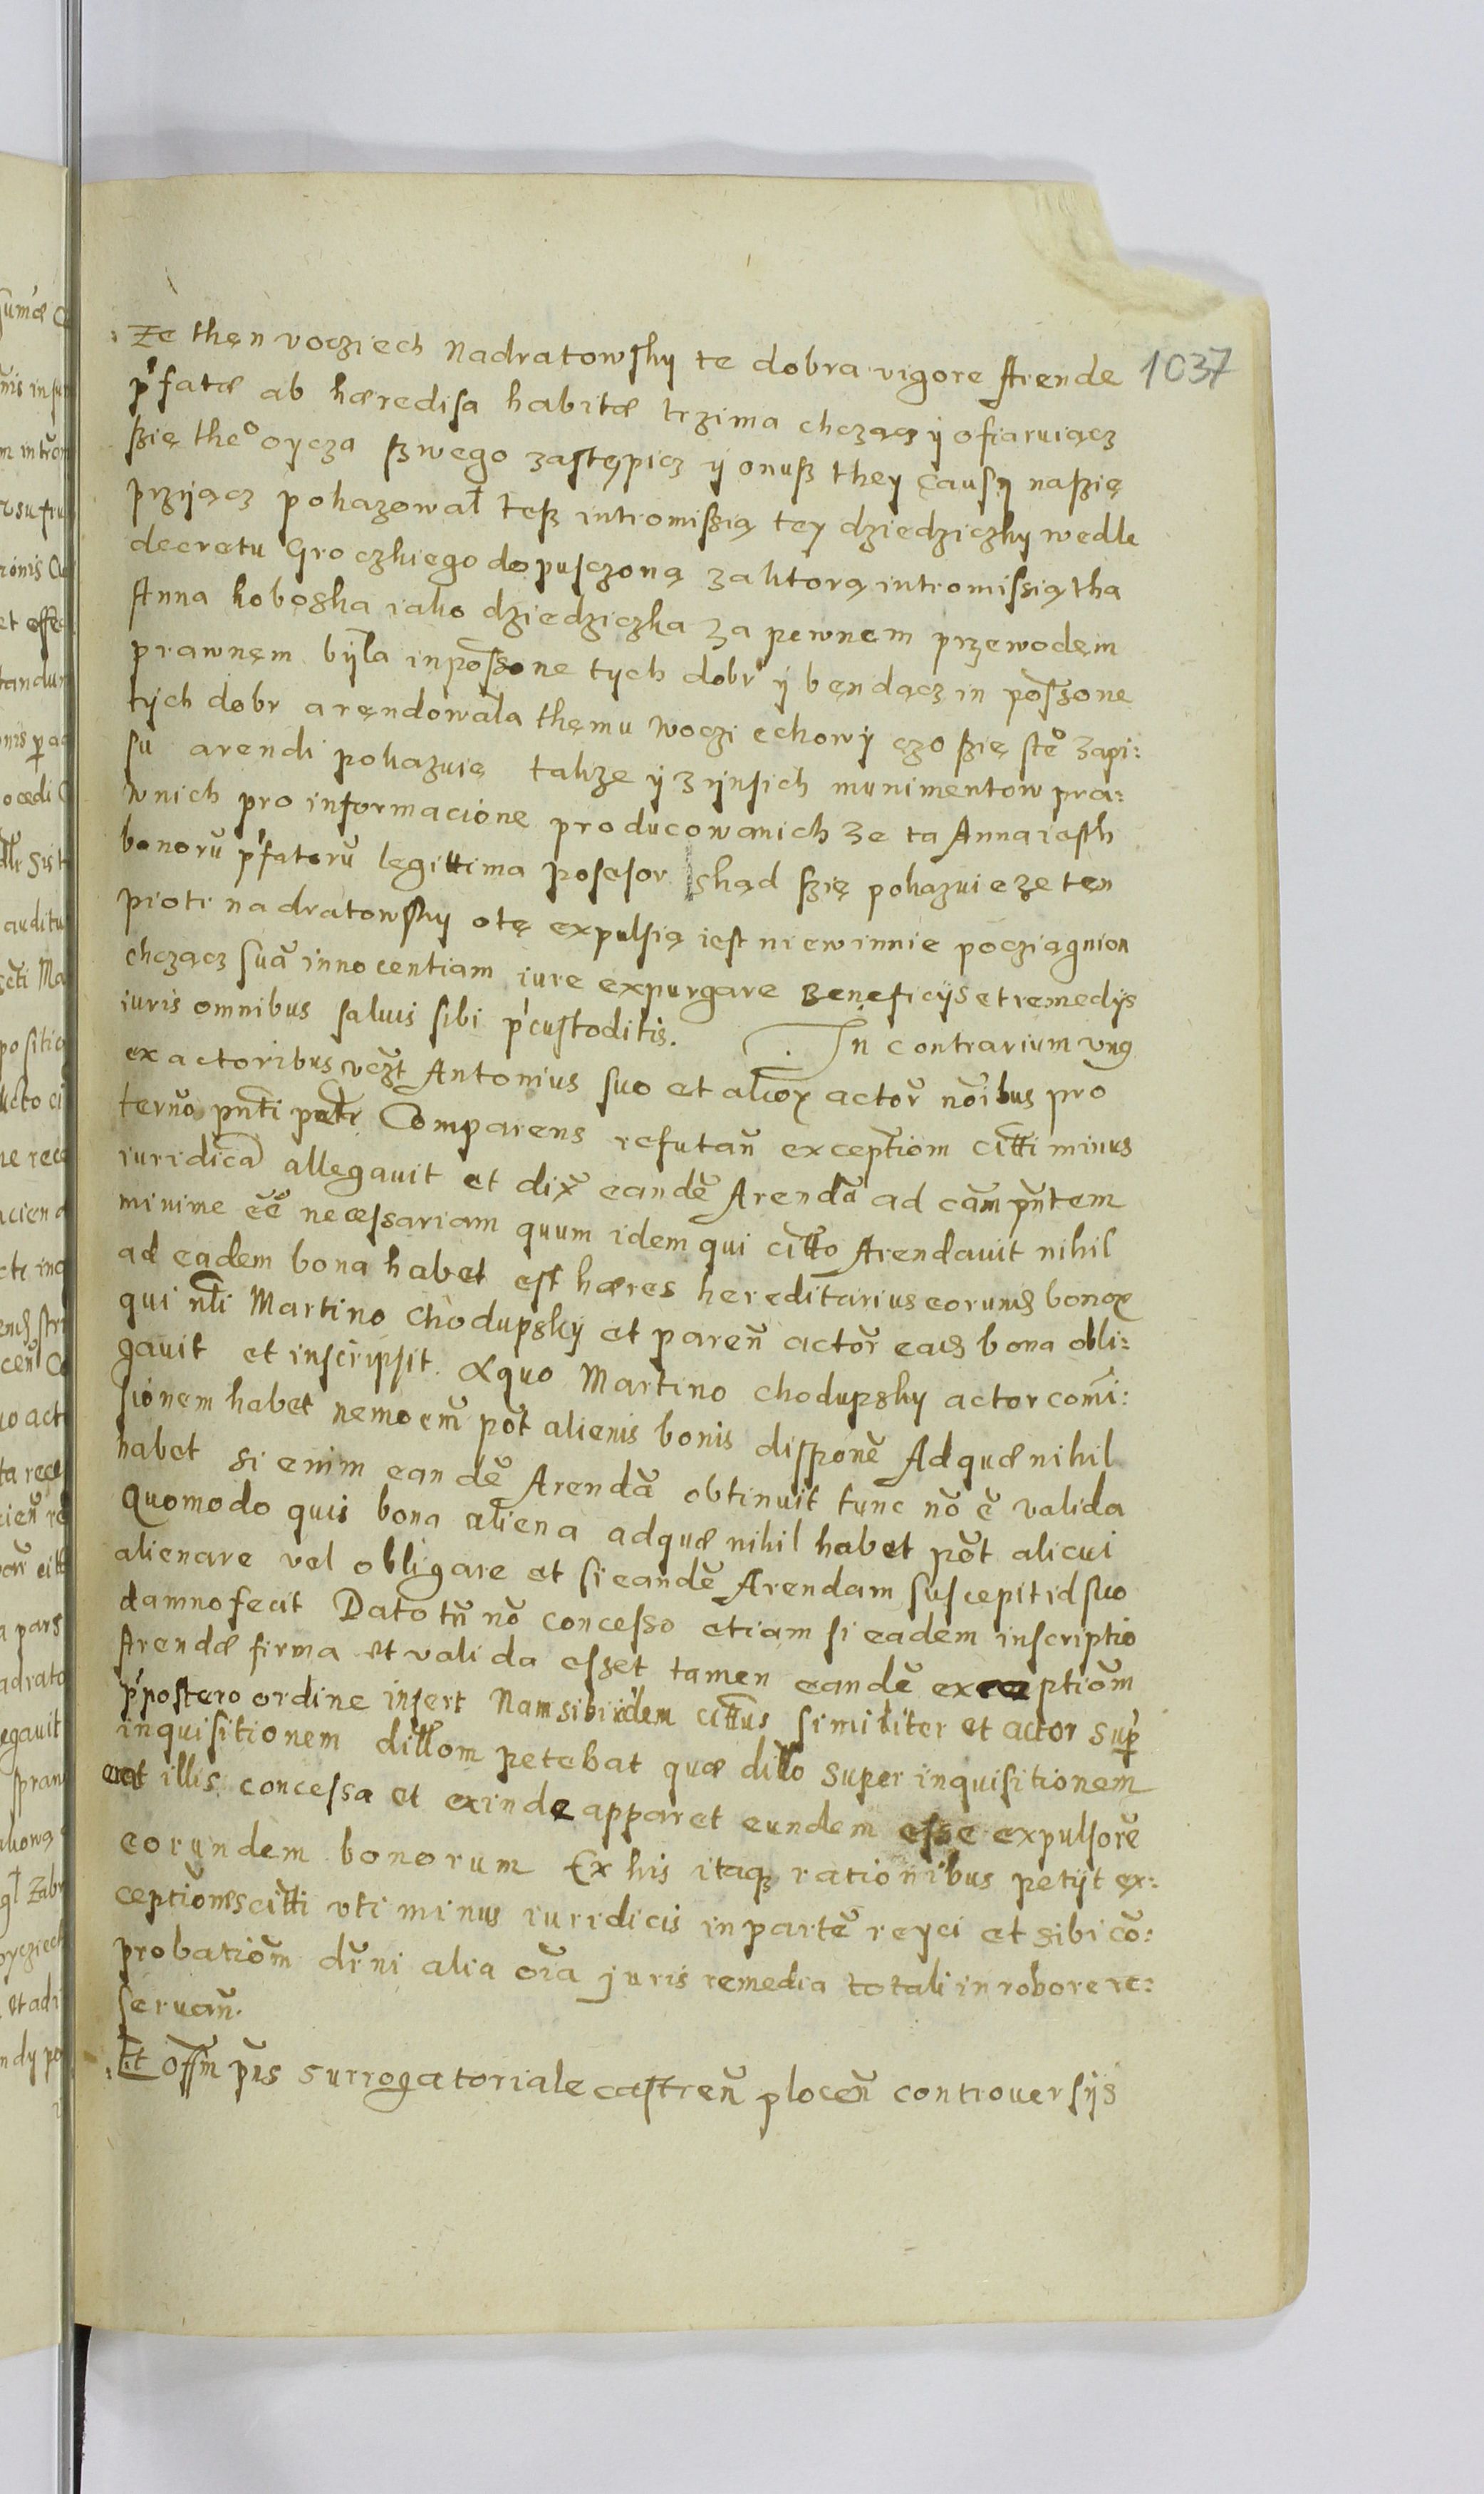 1037
Ze thęn vocziech Nadratowsky te dobra vigore Arende
p'fatæ ab hæredisa habitæ trzima chcząc y ofiaruiącz
ßię the° oycza ßwego zastępicz y onuß they causy naßię
przyącz pokazował teß intromißią tey dziedziczky wedle
decretu Groczkiego dopusczoną za ktorą intromissią tha
Anna koboska iako dziedziczka za pewnem przewodęm
prawnęm była inpossone tych dobr y bęndącz in possone
tych dobr aręndowała thęmu woczi echowy czo ßię ste° zapi:
su arendi pokazuię takze y z ynsich munimentow pra:
wnich pro informacione producowanich ze ta Anna iesth
bonorũ p'fatorũ legittima posesor skąd ßię pokazuie ze tęn
piotr nadratowsky otę expulsią iest niewinnie pocziągnion
chcząc suã innocentiam iure expurgare Beneficijs et remedijs
iuris omnibus saluis sibi p'custoditis. In contrarium vnq
ex actoribus vczt Antonius suo et alioꝝ actor noĩbus pro
terno pñti petr Comparens refutañ exceptiom citti minus
iuridicã allegauit et dix̃ eandẽ Arendã ad cãm pñtem
minime eẽ necessariam quum idem qui citto Arendauit nihil
ad eadem bona habet est hæres hereditarius eorund bonoꝝ
qui nli Martino Chodupsky et pareñ actor ead bona obli:
gauit et inscripsit. A quo Martino chodupsky actor comi:
sionem habet nemo em̃ pot alienis bonis disponẽ Ad quæ nihil
habet si enim eandẽ Arendã obtinuit tunc nõ ẽ valida
Quomodo quis bona aliena ad quæ nihil habet pot alicui
alienare vel obligare et si eandẽ Arendam suscepit id suo
damno fecit Dato tñ nõ concesso etiam si eadem inscriptio
Arendæ firma et valida esset tamen eandẽ exceptiom
p'postero ordine infert Nam sibi idem cittus similiter et actor sup
inquisitionem dillom petebat quæ dillo super inquisitionem
erat illis concessa et exinde apparet eundem esse expulsorẽ
eorundem bonorum Ex his itaqꝫ rationibus petijt ex:
ceptiones citti vti minus iuridicis in partẽ reyci et sibi cõ:
probatiom dr̃ni alia oĩa juris remedia totali in robore re:
seruañ.
Et offm pñs surrogatoriale castreñ ploceñ controuersijs